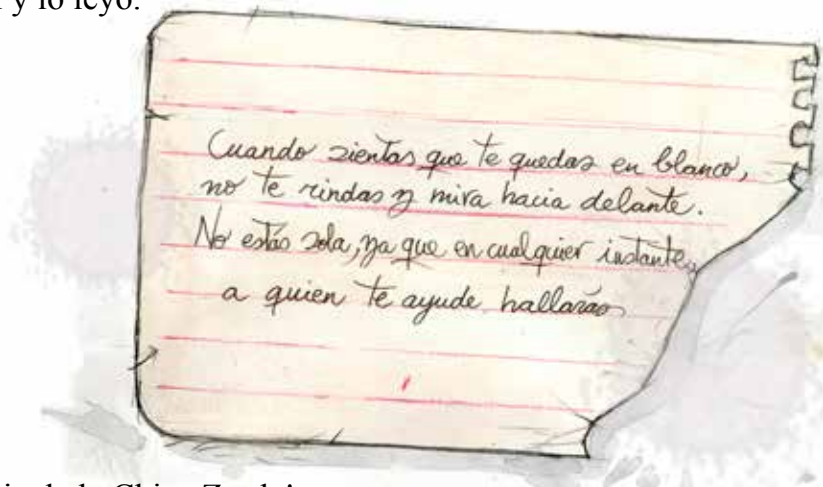 y lo leyó.
Cuando sientas que te quedas en blanco,
no te rindas y mira hacia delante.
No estás sola, ya que en cualquier instante,
a quien te ayude hallarás